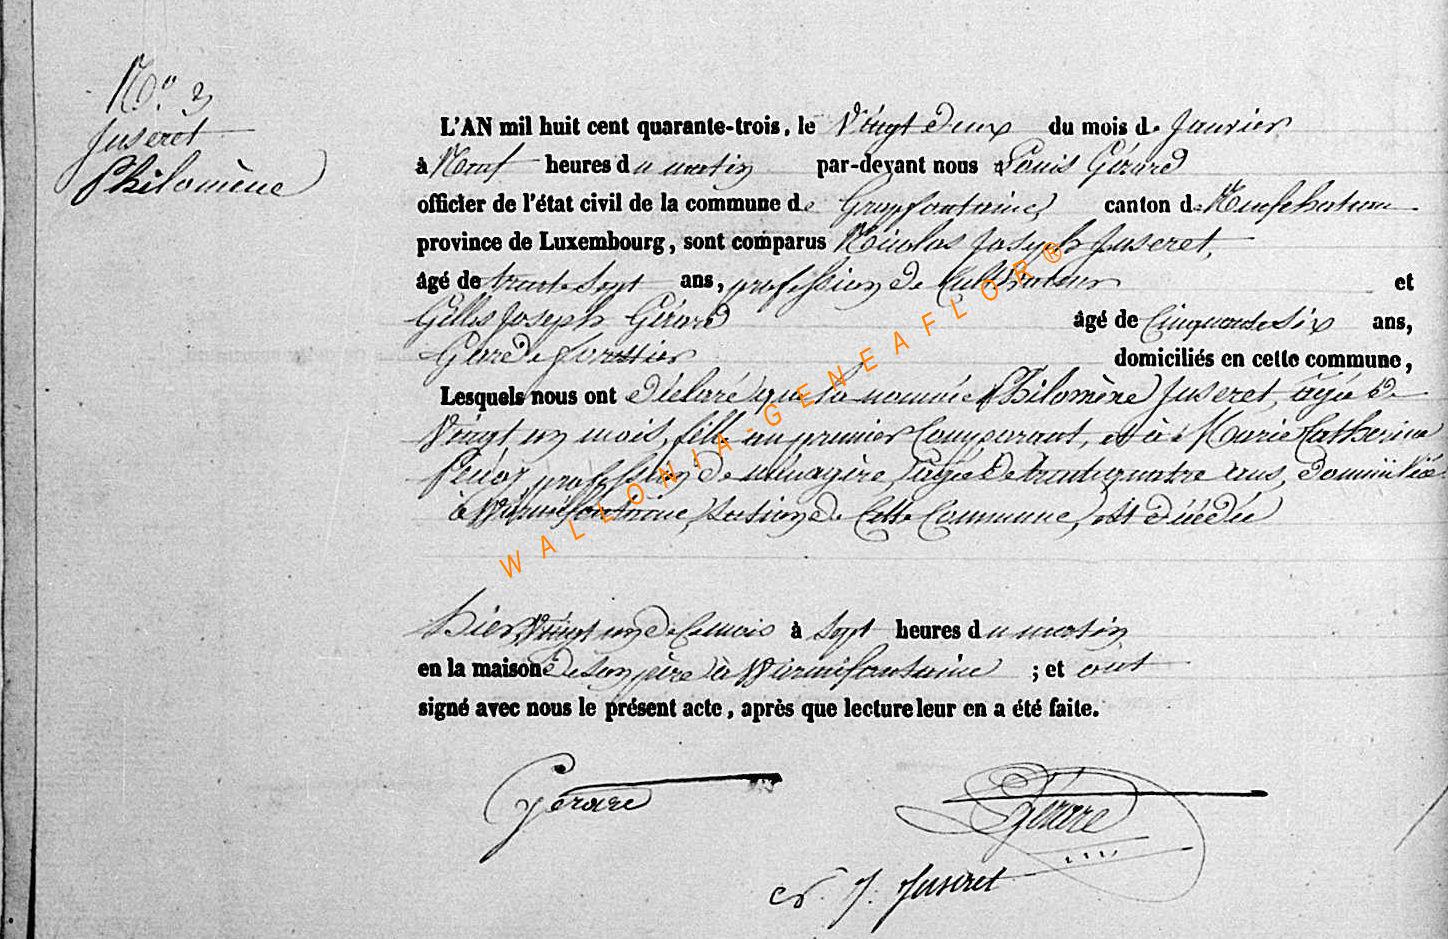 No. 3
Juseret
Philomène
L'AN mil huit cent quarante-trois, le Vingt deux du mois de Janvier
à Neuf heures du matin par-devant nous Louis Gérard
officier de l'état civil de la commune de Grapfontaine, canton de Neufchateau
province de Luxembourg, sont comparus Nicolas Joseph Juseret,
âgé de trente sept ans, profession de Cultivateur et
Gilles Joseph Gérard âgé de Cinquante Six ans,
Garde forestier domiciliés en cette commune,
Lesquels nous ont déclaré que la nommée Philomène Juseret, agée de
Vingt un mois, fille au premier Comparant, et à Marie Catherine
profession de ménagère, agée de trente quatre ans, domiciliée
à Warmifontaine, Section de Cette Commune, est décédée
hier, Vingt un de Ce mois à Sept heures du matin
en la maison de son père à Warmifontaine ; et ont
signé avec nous le présent acte, après que lecture leur en a été faite.
Gérard
Gérard
N. J. Juseret
WALLONIA-GENEAFLOR®